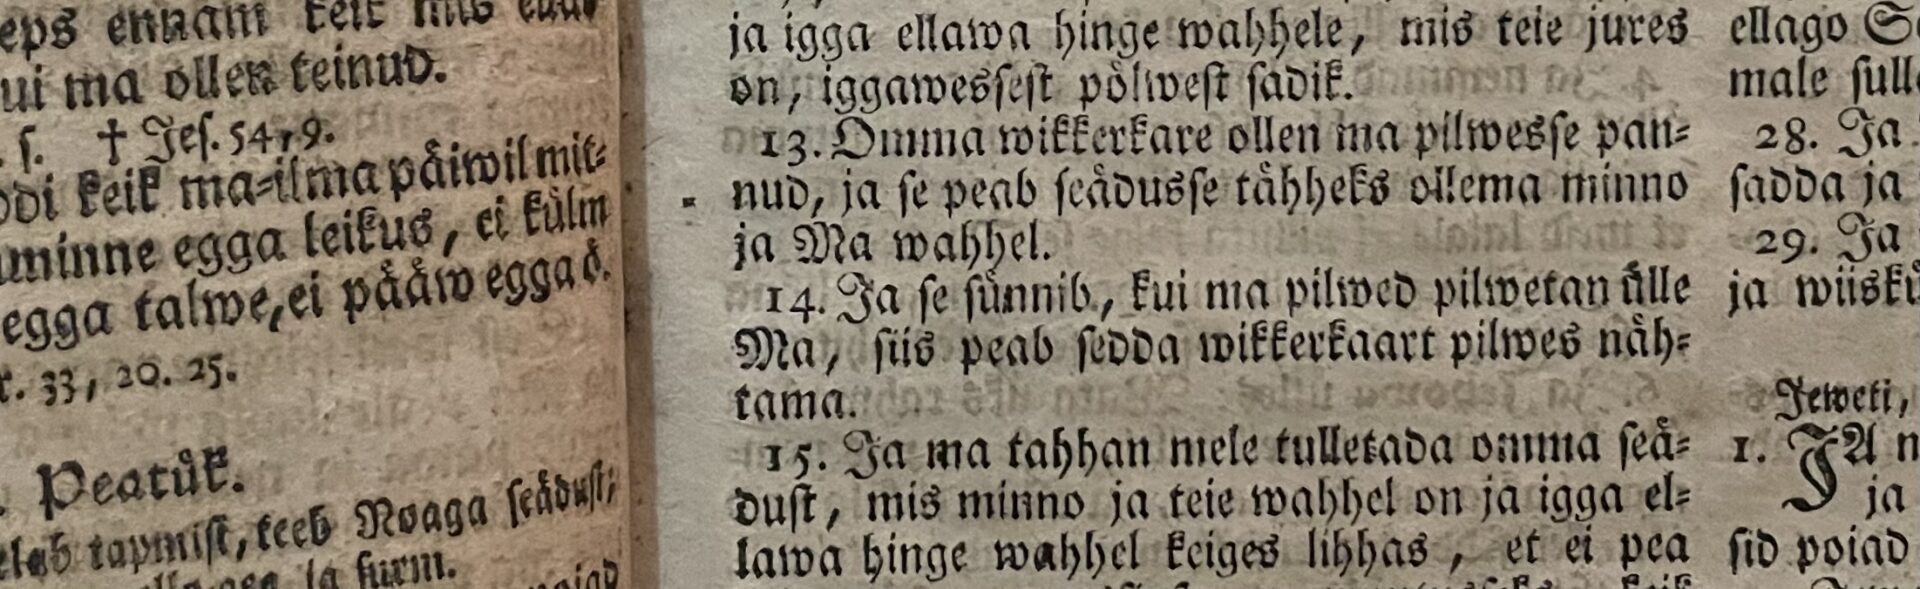 ennam keik mis
ui ma ollen teinud.
s. † Jes. 54, 9.
keik ma-ilma påiwil mit-
minne egga leikus, ei kůlm
egga talwe, ei pååw egga ö.
33, 20. 25.
Peatůk.
tapmist, teeb Noaga seådust;
surm.
ja igga ellawa hinge wahhele, mis teie jures
on, iggawessest pölwest sadik.
13. Omma wikkerkare ollen ma pilwesse pan-
nud, ja se peab seådusse tåhheks ollema minno
ja Ma wahhel.
14. Ja se sůnnib, kui ma pilwed pilwetan ůlle
Ma, siis peab sedda wikkerkaart pilwes nåh-
tama.
15. Ja ma tahhan mele tulletada omma seå-
dust, mis minno ja teie wahhel on ja igga el-
lawa hinge wahhel keiges lihhas, et ei pea
ellago
male
28. Ja
sadda ja
29. Ja
ja
Jeweti,
1. JA
ja
sid poiad